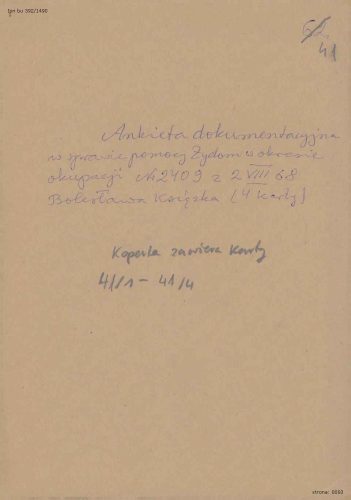 ipn bu 392/1490
41
Ankieta dokumentacyjna
w sprawie pomocy Żydom w okresie
okupacji Nr 2409 z 2 VIII 68
Bolesława Książka (4 karty)
Koperta zawiera karty
41/1 - 41/4
strona: 0060